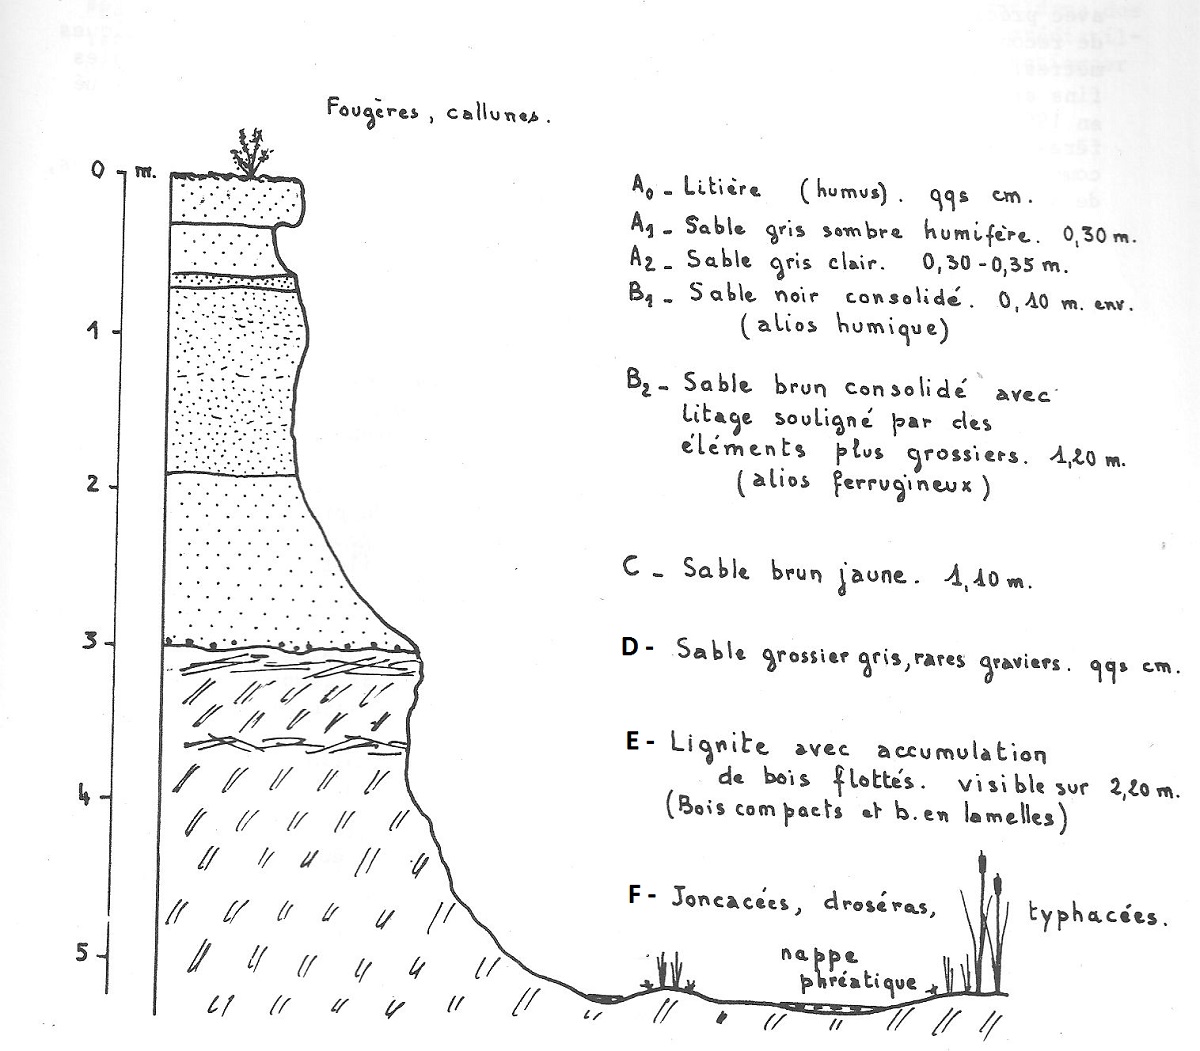 Fougères, callunes.
0 m.
1
2
3
4
5
A₀ - Litière (humus). qqs cm.
A₁ - Sable gris sombre humifère. 0,30 m.
A₂ - Sable gris clair. 0,30-0,35 m.
B₁ - Sable noir consolidé. 0,10 m. env.
(alios humique)
B₂ - Sable brun consolidé avec
litage souligné par des
éléments plus grossiers. 1,20 m.
(alios ferrugineux)
C - Sable brun jaune. 1,10 m.
D - Sable grossier gris, rares graviers. qqs cm.
E - Lignite avec accumulation
de bois flottés. visible sur 2,20 m.
(Bois compacts et b. en lamelles)
F - Joncacées, droséras, typhacées.
nappe
phréatique